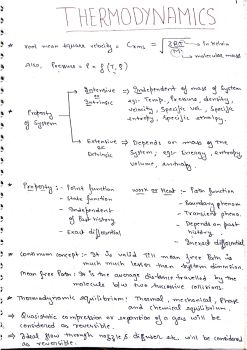 THERMODYNAMICS
* root mean square velocity = Crms = √3RT/M → In kelvin
→ molecular mass
Also, Pressure = P = f (T, ρ)
Property of System
Intensive or Intrinsic → Independent of mass of System
eg: Temp, Pressure, density,
velocity, Specific vol., specific
entropy, Specific enthalpy.
Extensive or Extrinsic → Depends on mass of the
System, eg: Energy, entropy
volume, enthalpy
* Property: - Point function
- State function
- Independent
of Past history
- Exact differential
Work or Heat - Path function
- Boundary phenom
- Transient pheno.
- Depends on past
history.
- Inexact differential
* Continuum concept: It is valid till mean free Path is
much much lesser then system dimension.
Mean free Path: It is the average distance travelled by the
molecule b/w two successive collisions.
* Thermodynamic equilibrium: Thermal, mechanical, Phase
and chemical equilibrium.
* Quasistatic compression or expansion of a gas will be
considered as reversible.
* Ideal flow through nozzle & diffuser etc. will be considered
as reversible.